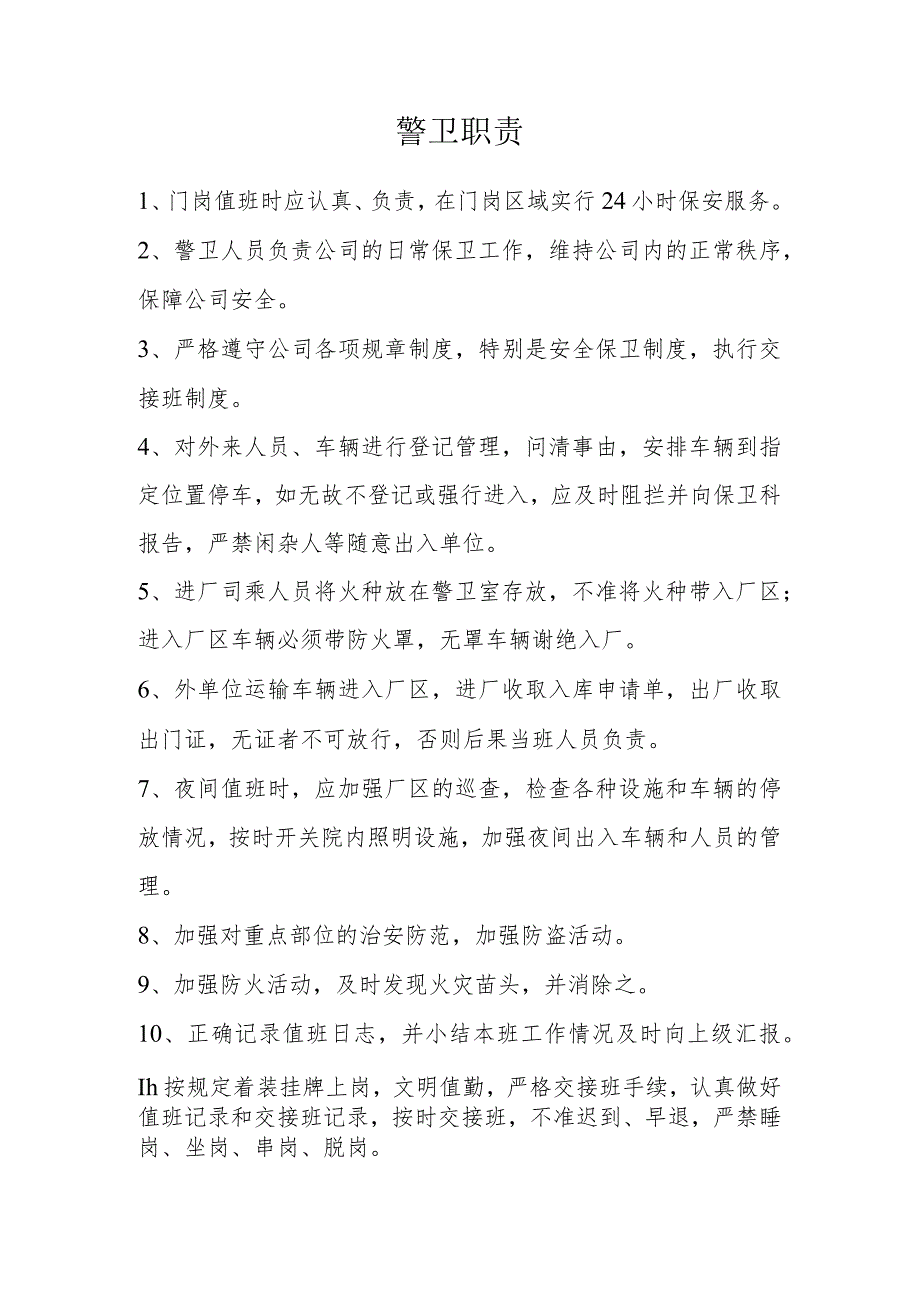 警卫职责
1、门岗值班时应认真、负责，在门岗区域实行24小时保安服务。
2、警卫人员负责公司的日常保卫工作，维持公司内的正常秩序，
保障公司安全。
3、严格遵守公司各项规章制度，特别是安全保卫制度，执行交
接班制度。
4、对外来人员、车辆进行登记管理，问清事由，安排车辆到指
定位置停车，如无故不登记或强行进入，应及时阻拦并向保卫科
报告，严禁闲杂人等随意出入单位。
5、进厂司乘人员将火种放在警卫室存放，不准将火种带入厂区；
进入厂区车辆必须带防火罩，无罩车辆谢绝入厂。
6、外单位运输车辆进入厂区，进厂收取入库申请单，出厂收取
出门证，无证者不可放行，否则后果当班人员负责。
7、夜间值班时，应加强厂区的巡查，检查各种设施和车辆的停
放情况，按时开关院内照明设施，加强夜间出入车辆和人员的管
理。
8、加强对重点部位的治安防范，加强防盗活动。
9、加强防火活动，及时发现火灾苗头，并消除之。
10、正确记录值班日志，并小结本班工作情况及时向上级汇报。
Ih按规定着装挂牌上岗，文明值勤，严格交接班手续，认真做好
值班记录和交接班记录，按时交接班，不准迟到、早退，严禁睡
岗、坐岗、串岗、脱岗。